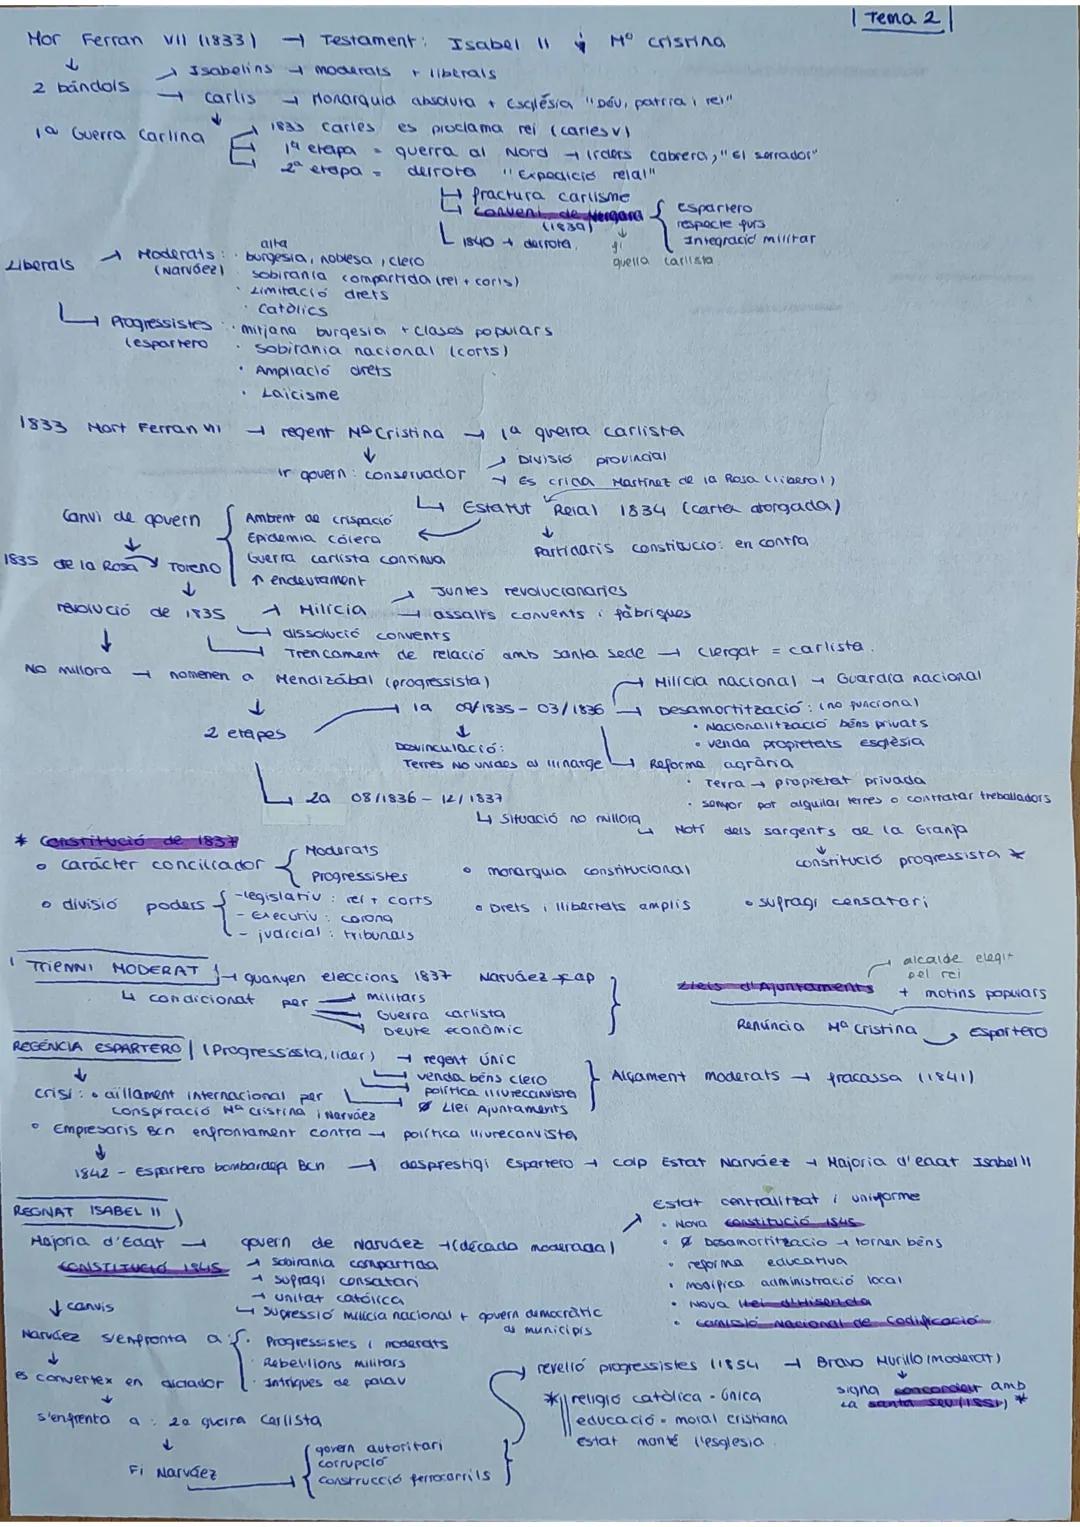 Tema 2
Mor Ferran VII (1833) → Testament: Isabel II i Mª cristina
↓
2 bàndols → Isabelins → moderats + liberals
→ carlis → Monarquia absoluta + Església "Déu, patria i rei"
1a Guerra Carlina
→ 1833 Carles es proclama rei (carles V)
1ª etapa = guerra al Nord → líders Cabrera, "El serrador"
2ª etapa = derrota "Expedició reial"
↳ fractura carlisme
↳ conveni de Vergara (1839) { espartero
respecte furs
Integració militar
↳ 1840 → derrota
↓
fi guerra carlista
Liberals → Moderats: (Narváez)
· alta burgesia, noblesa, clero
· sobirania compartida (rei + corts)
· Limitació drets
· catòlics
↳ Progressistes (espartero
· mitjana burgesia + clases populars
· sobirania nacional (corts)
· Ampliació drets
· Laicisme
1833 Mort Ferran VII → regent Mª Cristina → 1ª guerra carlista
↓
1r govern: conservador → Divisió provincial
→ Es crida Martínez de la Rosa (liberal)
↳ Estatut Reial 1834 (carta atorgada)
↓
Partidaris constitució: en contra
Canvi de govern { Ambient de crispació
Epidemia còlera
Guerra carlista continua
↑ endeutament
↓
1835 de la Rosa → Toreno
↓
revolució de 1835 → Milícia → Juntes revolucionaries
→ assalts convents i fàbriques
↳ dissolució convents
↳ Trencament de relació amb santa sede → Clergat = carlista.
↓
No millora → nomenen a Mendizábal (progressista)
↓
2 etapes → 1a 09/1835 - 03/1836
→ Milícia nacional → Guardia nacional
→ Desamortització: (no funciona)
• Nacionalització béns privats
• venda propietats església
↳ Reforma agrària
· Terra → propietat privada
· senyor pot alquilar terres o contratar treballadors
↓
Desvinculació:
Terres No unides al llinatge
↳ 2a 08/1836 - 12/1837
↳ Situació no millora
↳ Motí dels sargents de la Granja
↓
constitució progressista *
* Constitució de 1837
o caràcter conciliador { Moderats
Progressistes
o monarquia constitucional
o divisió poders { - legislatiu: rei + corts
- Executiu: corona
- judicial: tribunals
o Drets i llibertats amplis
o sufragi censatari
TRIENNI MODERAT → guanyen eleccions 1837 Narváez → cap
↳ condicionat per → militars
→ Guerra carlista
→ Deute econòmic
Lleis d'Ajuntaments → alcalde elegit pel rei
+ motins populars
Renúncia Mª Cristina → Espartero
REGÈNCIA ESPARTERO (Progressista, líder) → regent únic
↳ venda béns clero
↳ política lliurecanvista
↳ Ø Llei Ajuntaments
} Alçament moderats → fracassa (1841)
↓
crisi: o aïllament internacional per conspiració Mª Cristina i Narváez
o Empresaris Bcn enfrontament contra → política lliurecanvista
↓
1842 - Espartero bombardeja Bcn → desprestigi Espartero → colp Estat Narváez → Majoria d'edat Isabel II
REGNAT ISABEL II
Majoria d'Edat → govern de Narváez → (década moderada)
CONSTITUCIÓ 1845 → sobirania compartida
→ sufragi censatari
→ unitat catòlica
↳ supressió milícia nacional + govern democràtic als municipis
Estat centralitzat i uniforme
• Nova constitució 1845
• Ø Desamortització → tornen béns
• reforma educativa
• modifica administració local
• Nova llei d'Hisenda
• comissió Nacional de Codificació
↓ canvis
Narváez s'enfronta a { · Progressistes i moderats
· Rebel·lions militars
· Intrigues de palau
↓
es converteix en dictador
↓
s'enfronta a : 2a guerra carlista
↓
Fi Narváez → { govern autoritari
corrupció
construcció ferrocarrils }
→ revelló progressistes (1854 → Bravo Murillo (moderat)
↓
signa concordat amb la santa seu (1851) *
* religió catòlica = única
educació = moral cristiana
estat manté l'esglesia